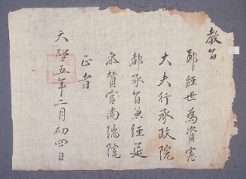 教旨
鄭經世為資憲
大夫行承政院
都承旨兼經筵
參贊官尚瑞院
正者
天啓五年二月初四日